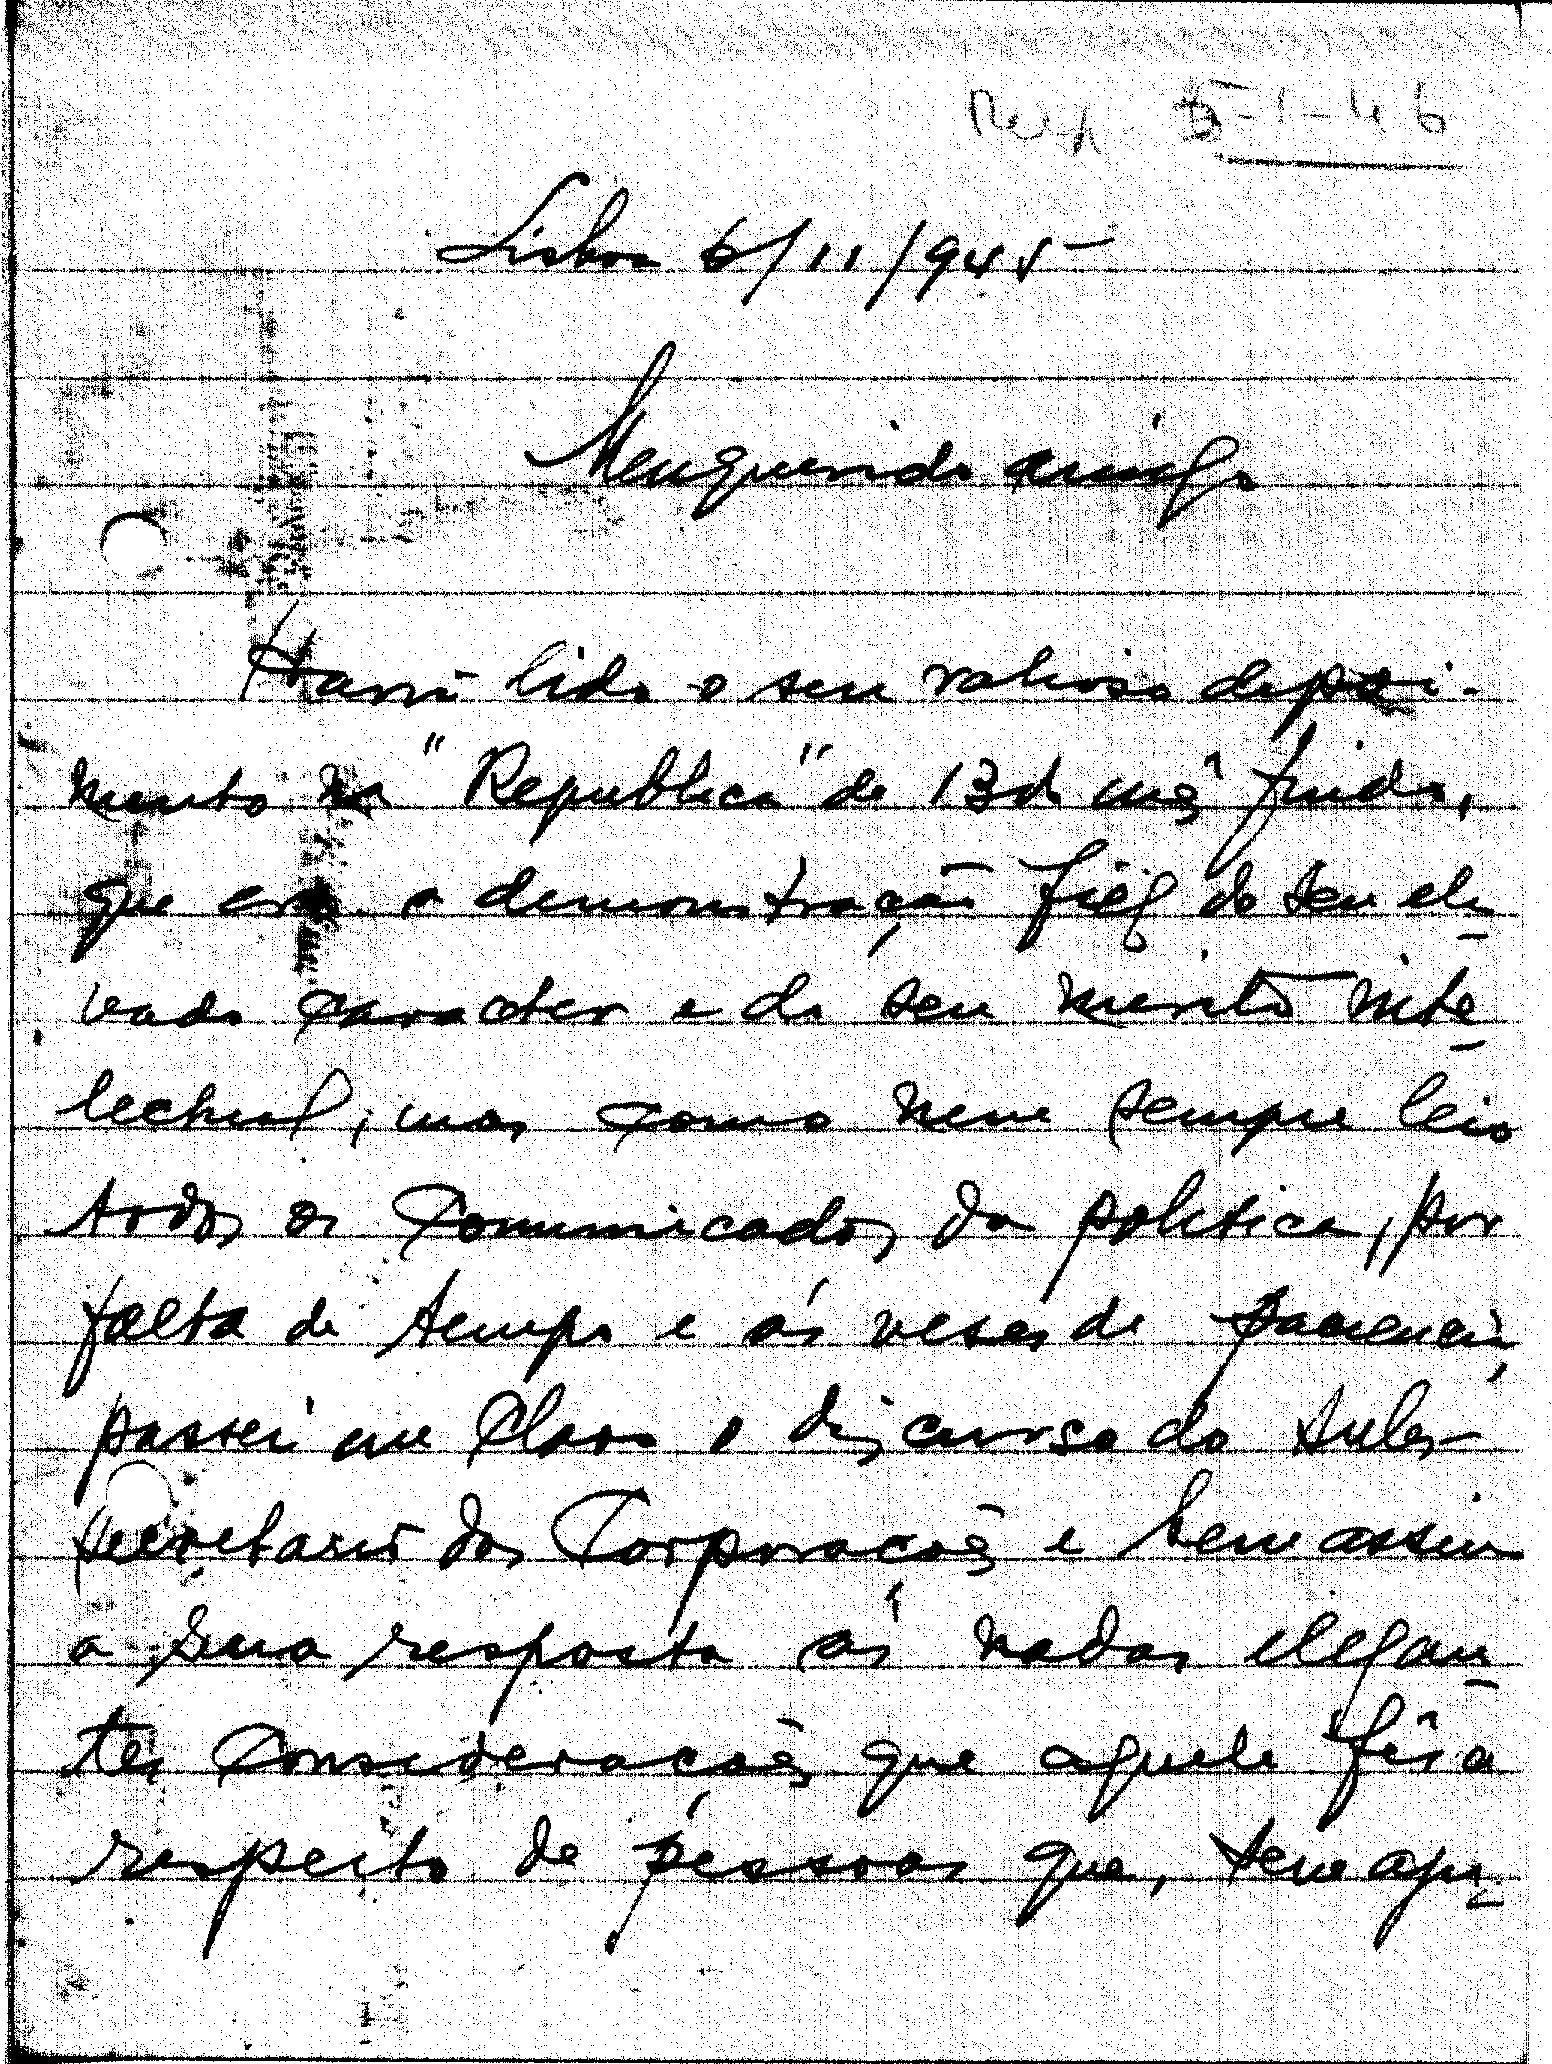 5-1-46
Lisboa 6/11/945
Meu querido amigo
Havia lido o seu valioso depoi-
mento na "Republica" de 13 do mês findo,
que era a demonstração fiel do seu ele
vado caracter e do seu merito inte
lectual, mas como nem sempre leio
todos os comunicados da politica, por
falta de tempo e ás veses de paciencia,
passei em claro o discurso do sub-
secretario das Corporações e bem assim
a sua resposta ás nadas elegan
tes considerações que aquele fês a
respeito de pessoas que, sem apu